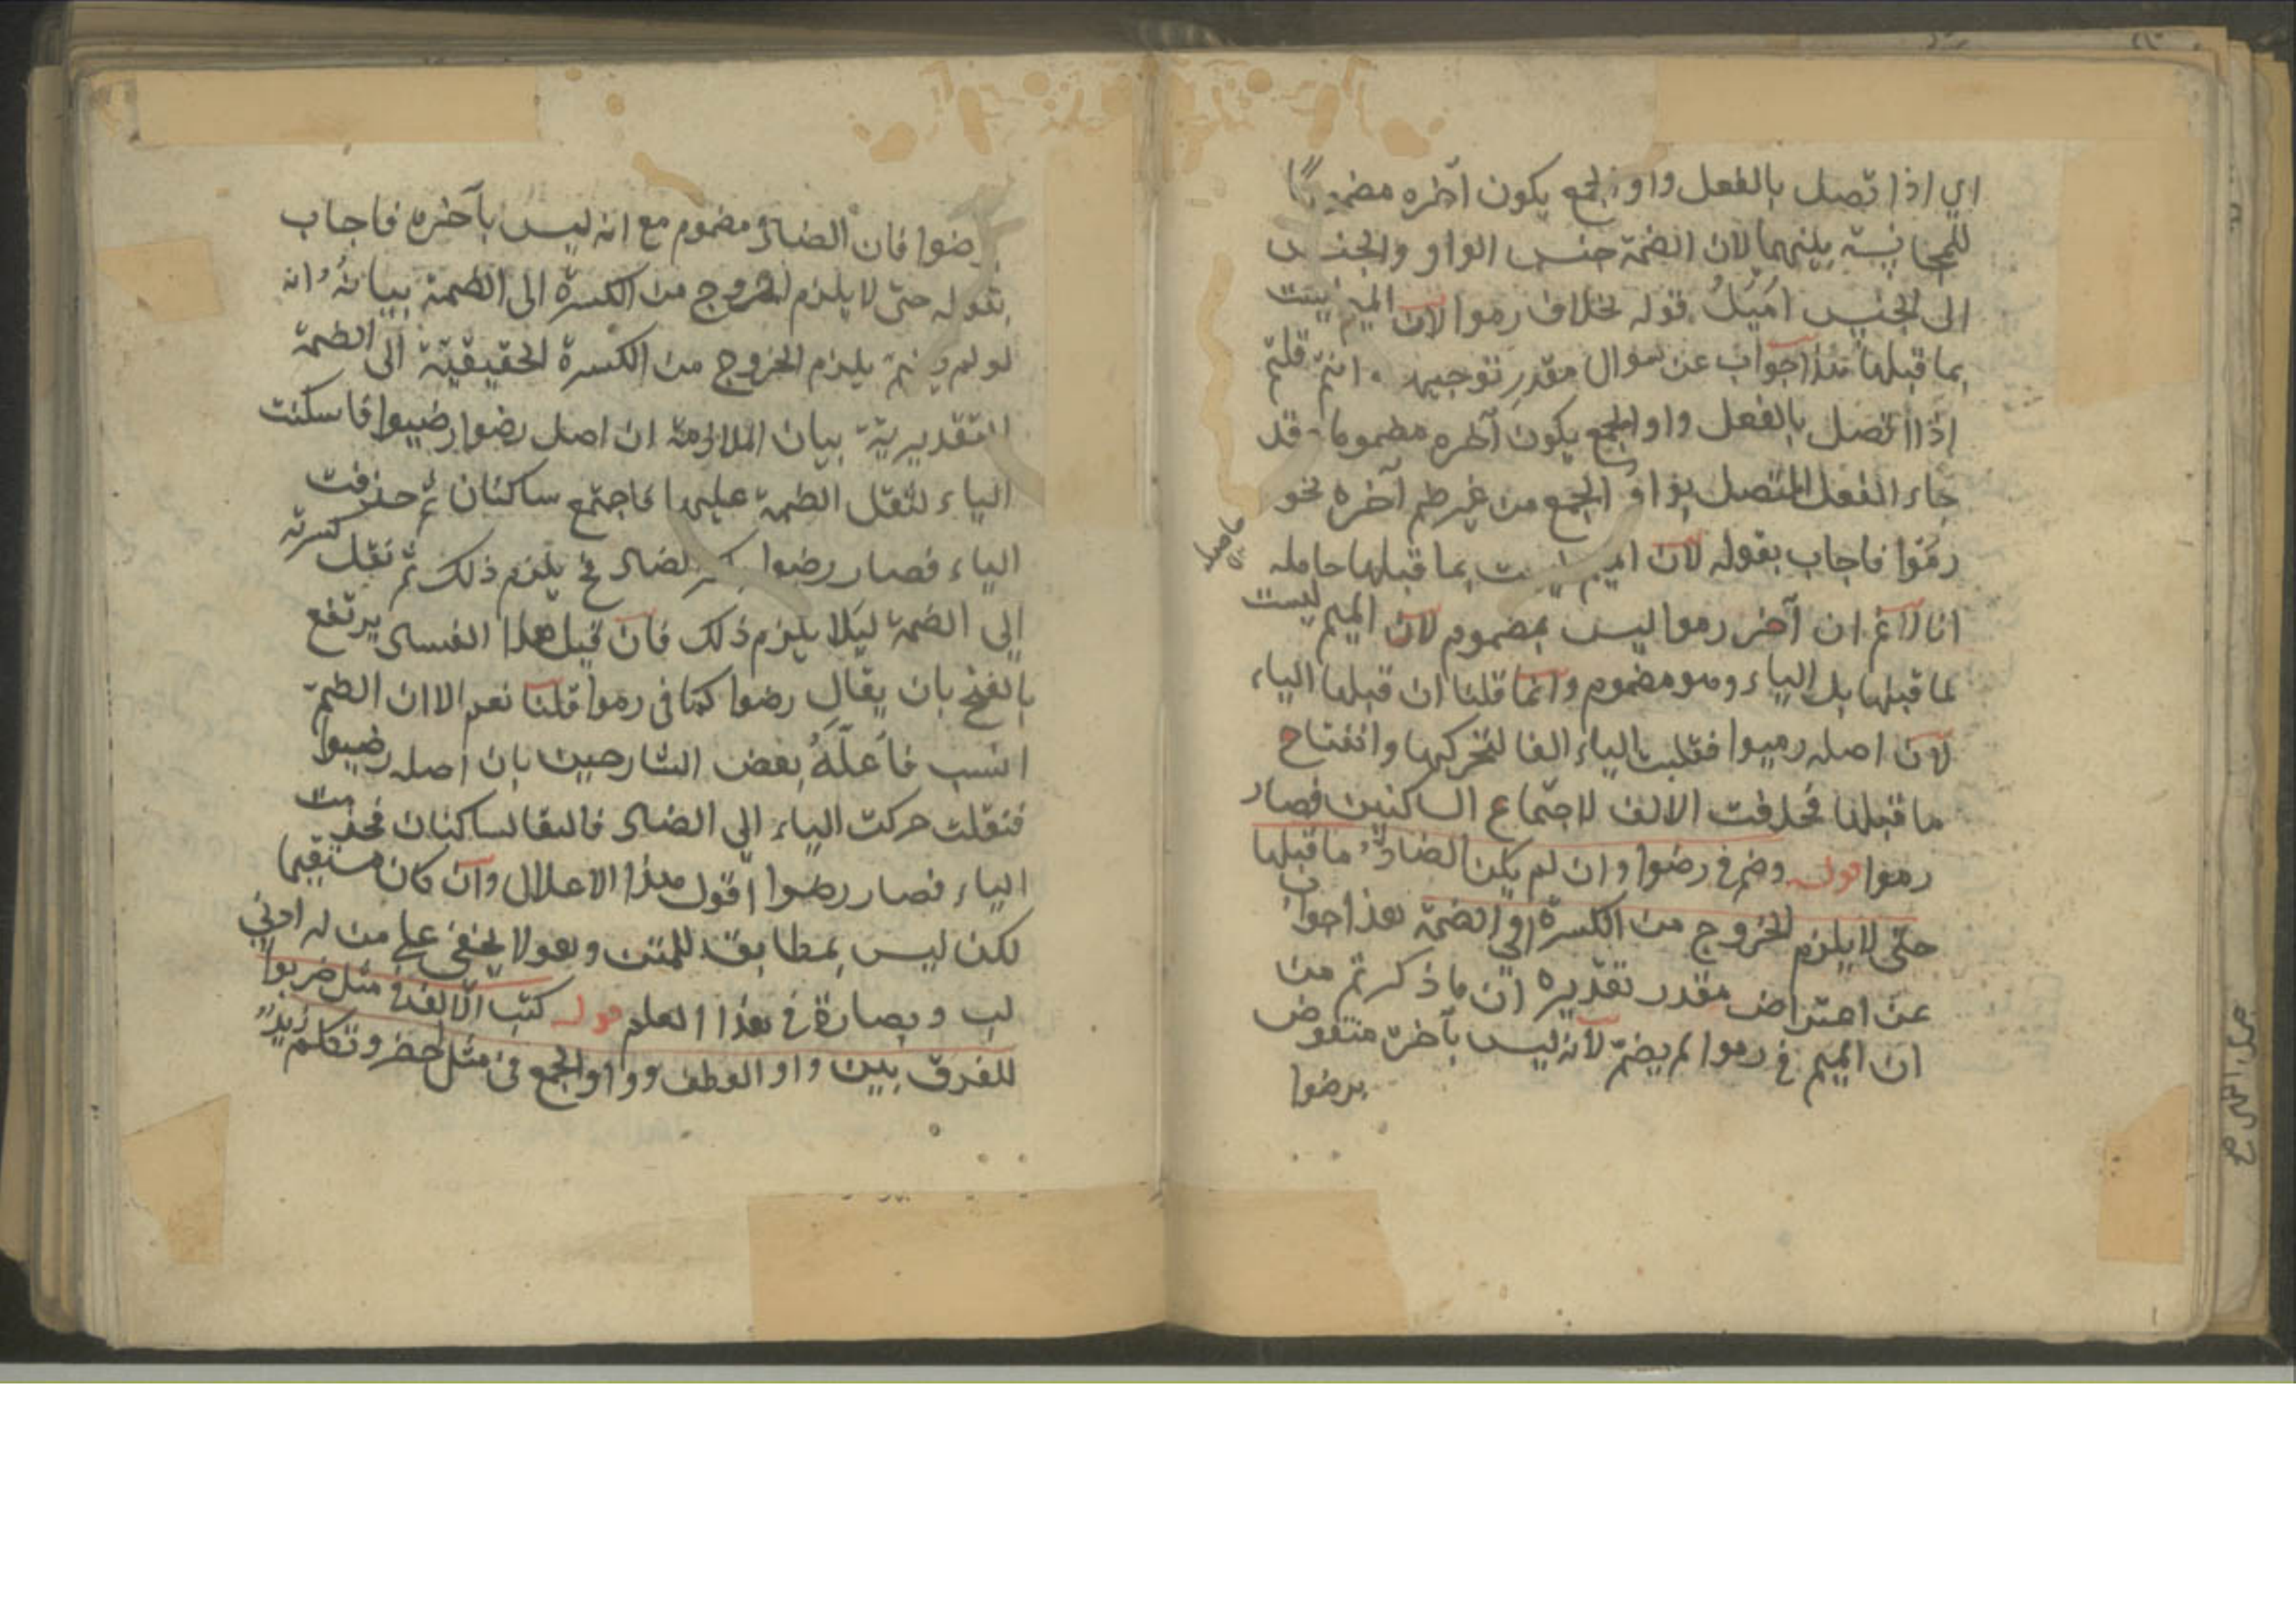 اي اذا تصل بالفعل واو الجمع يكون آخره مضموما
للمجانسة بينهما لان الضمة جنس الواو والجنس
الى الجنس اميل قوله بخلاف رموا لان الميم ليست
بما قبلها هذا جواب عن سؤال مقدر توجيهه انتم قلتم
اذا اتصل بالفعل واو الجمع يكون آخره مضموما وقد
جاء الفعل المتصل بواو الجمع من غير ضم آخره نحو
رموا فاجاب بقوله لان الميم ليست بما قبلها حاصله
حاصله
انا لانم ان آخر رموا ليس بمضموم لان الميم ليست
لما قبلها بل الياء وهو مضموم وانما قلنا ان قبلها الياء
لان اصله رميوا فقلبت الياء الفا لتحركها وانفتاح
ما قبلها فحذفت الالف لاجتماع الساكنين فصار
رموا قوله وضم في رضوا وان لم يكن الضاد ما قبلها
حتى لا يلزم الخروج من الكسرة الى الضمة هذا جواب
عن اعتراض مقدر تقديره ان ما ذكرتم من
ان الميم في رموا لم يضم لانه ليس بآخره منقوض
برضوا
رضوا فان الضاد مضموم مع انه ليس بآخره فاجاب
بقوله حتى لا يلزم الخروج من الكسرة الى الضمة بيانه انه
لو لم يضم يلزم الخروج من الكسرة الحقيقية الى الضمة
التقديرية بيان الملازمة ان اصل رضوا رضيوا فاسكنت
الياء لثقل الضمة عليها فاجتمع ساكنان ثم حذفت
الياء فصار رضوا بكسر الضاد فح يلزم ذلك ثم نقل كسرته
الى الضمة ليلا يلزم ذلك فان قيل هذا الفساد يرتفع
بالفتح بان يقال رضوا كما في رموا قلنا نعم الا ان الضم
انسب فاعله بعض الشارحين بان اصله رضيوا
فنقلت حركت الياء الى الضاد فالتقا لساكنان فحذفت
الياء فصار رضوا اقول هذا الاعلال وان كان مستقيما
لكن ليس بمطابق للمتن وهو لا يخفى على من له ادنى
لب وبصارة في هذا العلم قوله كتب الالف في مثل ضربوا
للفرق بين واو العطف وواو الجمع في مثل حضر وتكلم زيد